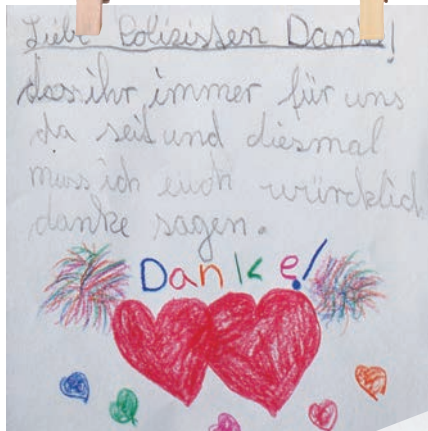 Liebe Polizisten Danke!
dass ihr immer für uns
da seit und diesmal
muss ich euch würcklich
danke sagen.
Danke!